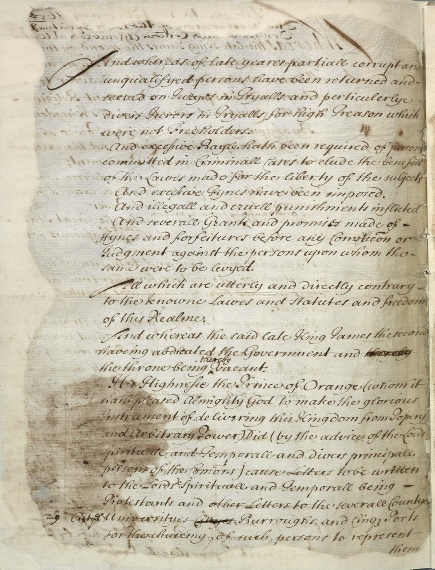 And whereas of late yeares partiall corrupt and
unqualifyed persons have been returned and
served on Juryes in Tryalls and particulerlye
divers Jurors in Tryalls for high Treason which
were not Freeholders.
And excessive Bayle hath been required of persons
committed in Criminall cases to elude the benefitt
of the Lawes made for the liberty of the subjects
And excessive Fynes have been imposed.
And illegall and cruell punishments inflicted
And severall Grants and promises made of
Fynes and forfeitures before any Conviction or
Judgment against the persons upon whom the
same were to be levyed.
All which are utterly and directly contrary
to the knowne Lawes and Statutes and freedom
of this Realme.
And whereas the said late King James the second
having abdicated the Government and thereby
the throne being thereby Vacant.
His Highnesse the Prince of Orange (whom it
hath pleased Almighty God to make the glorious
Instrument of delivering this Kingdom from Popery
and Arbitrary Power) Did (by the advice of the Lords
spirituall and Temporall and divers principall
persons of the Comons) cause Letters to be written
to the Lords Spirituall and Temporall being
Protestants and other Letters to the severall Countyes
Cityes Universityes Burroughs and Cinq Ports
for the chuseing of such persons to represent
them